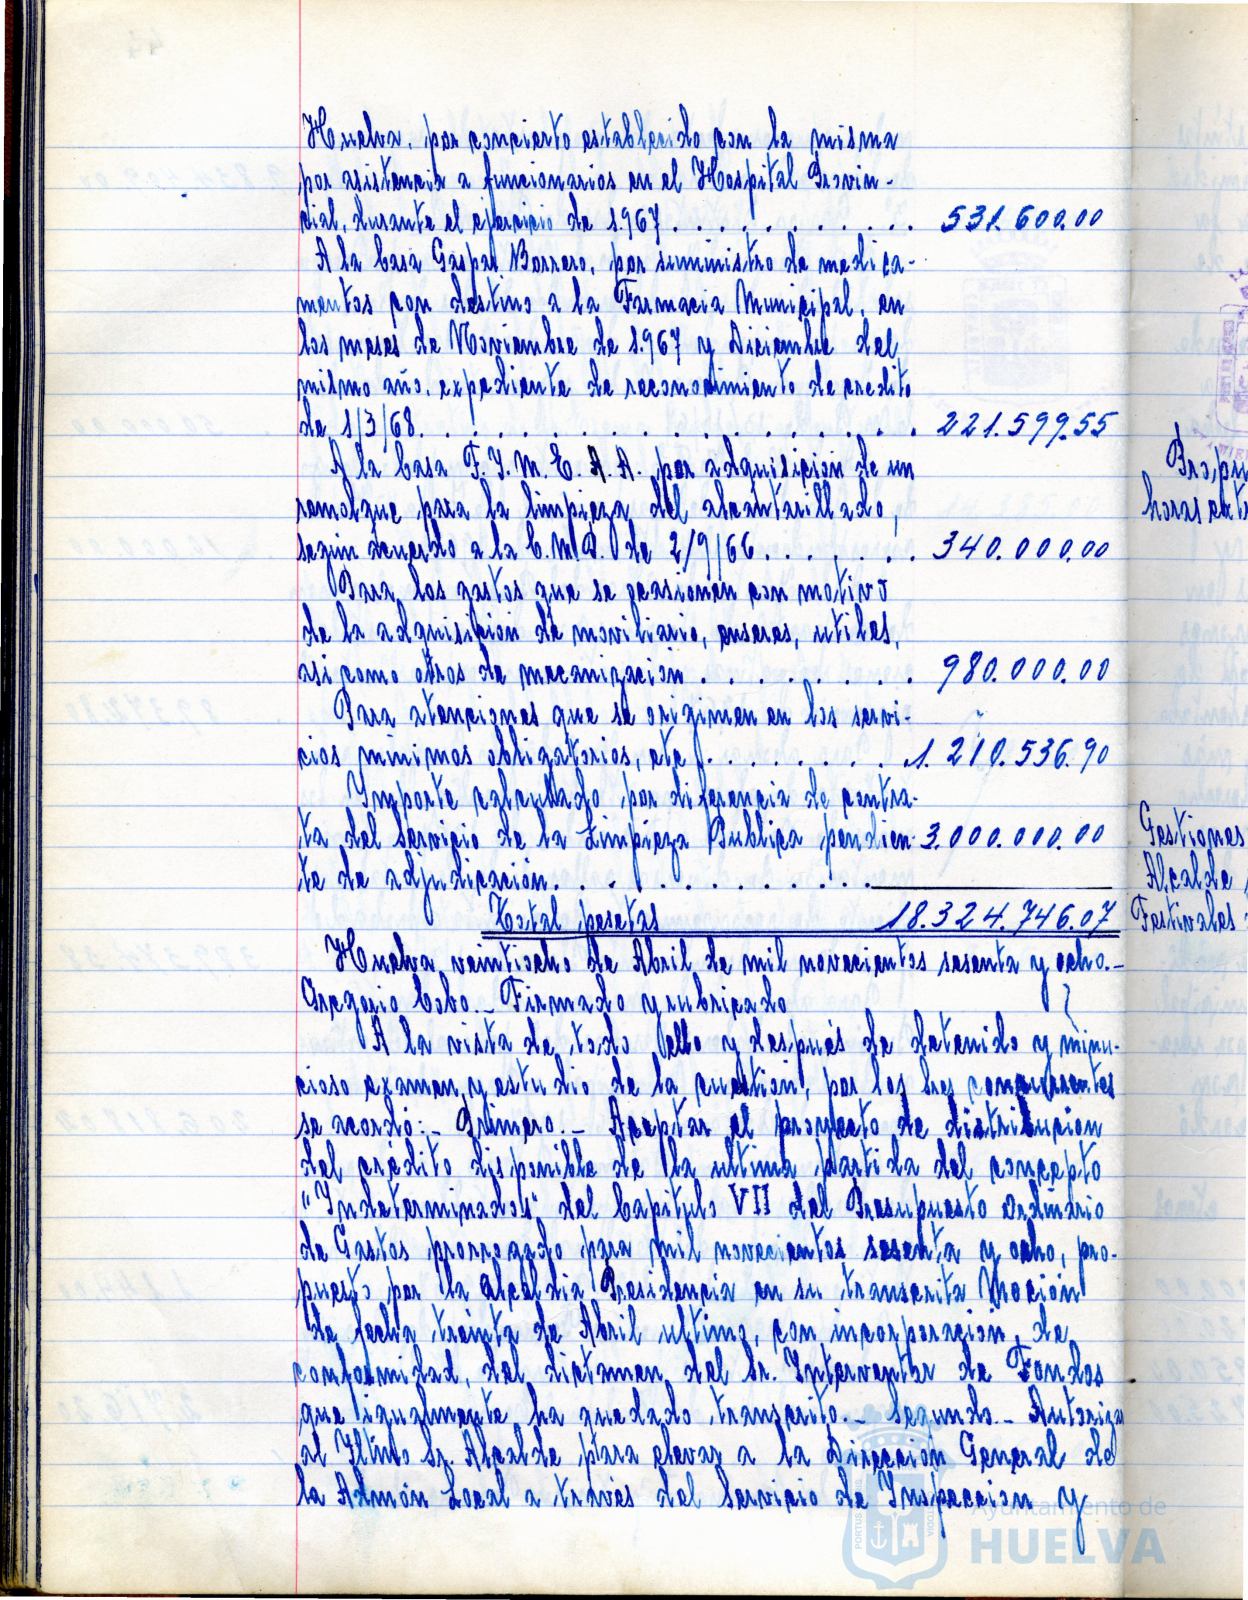 Huelva, por concierto establecido con la misma
por asistencia a funcionarios en el Hospital Provin-
cial, durante el ejercicio de 1.967 . . . . . . . . . . . 531.600.00
A la Casa Gaspar Barrero, por suministro de medica-
mentos con destino a la Farmacia Municipal, en
los meses de Noviembre de 1.967 y Diciembre del
mismo año, expediente de reconocimiento de credito
de 1/3/68. . . . . . . . . . . . . . . . . . . 221.599.55
A la Casa F.I.M.E.S.A. por adquisición de un
remolque para la limpieza del alcantarillado,
según acuerdo a la C.M.P. de 2/9/66 . . . . . . . 340.000,00
Para los gastos que se ocasionen con motivo
de la adquisición de moviliario, enseres, utiles,
asi como otros de mecanización . . . . . . . . . 980.000.00
Para atenciones que se originen en los servi-
cios minimos obligatorios, etc . . . . . . . . 1.210.536.90
Importe calculado por diferencia de contra-
ta del Servicio de la Limpieza Publica pendien- 3.000.000.00
te de adjudicación. . . . . . . . . . . .
Total pesetas 18.324.746.07
Huelva veintiocho de Abril de mil novecientos sesenta y ocho.-
Gregorio Cobo.- Firmado y rubricado
A la vista de todo ello y después de detenido y minu-
cioso examen y estudio de la cuestión, por los Sres concurrentes
se acordó:- Primero.- Aceptar el proyecto de distribución
del crédito disponible de la ultima partida del concepto
"Indeterminados" del Capitulo VII del Presupuesto ordinario
de Gastos prorrogado para mil novecientos sesenta y ocho, pro-
puesto por la Alcaldia Presidencia en su transcrita Moción
de fecha treinta de Abril ultimo, con incorporación, de
conformidad, del dictamen del Sr. Interventor de Fondos
que igualmente ha quedado transcrito.- Segundo.- Autorizar
al Iltmo Sr. Alcalde para elevar a la Dirección General de
la Admón Local a través del Servicio de Inspeccion y
horas
Gestiones
Alcalde
Festivales
Ayuntamiento de
HUELVA